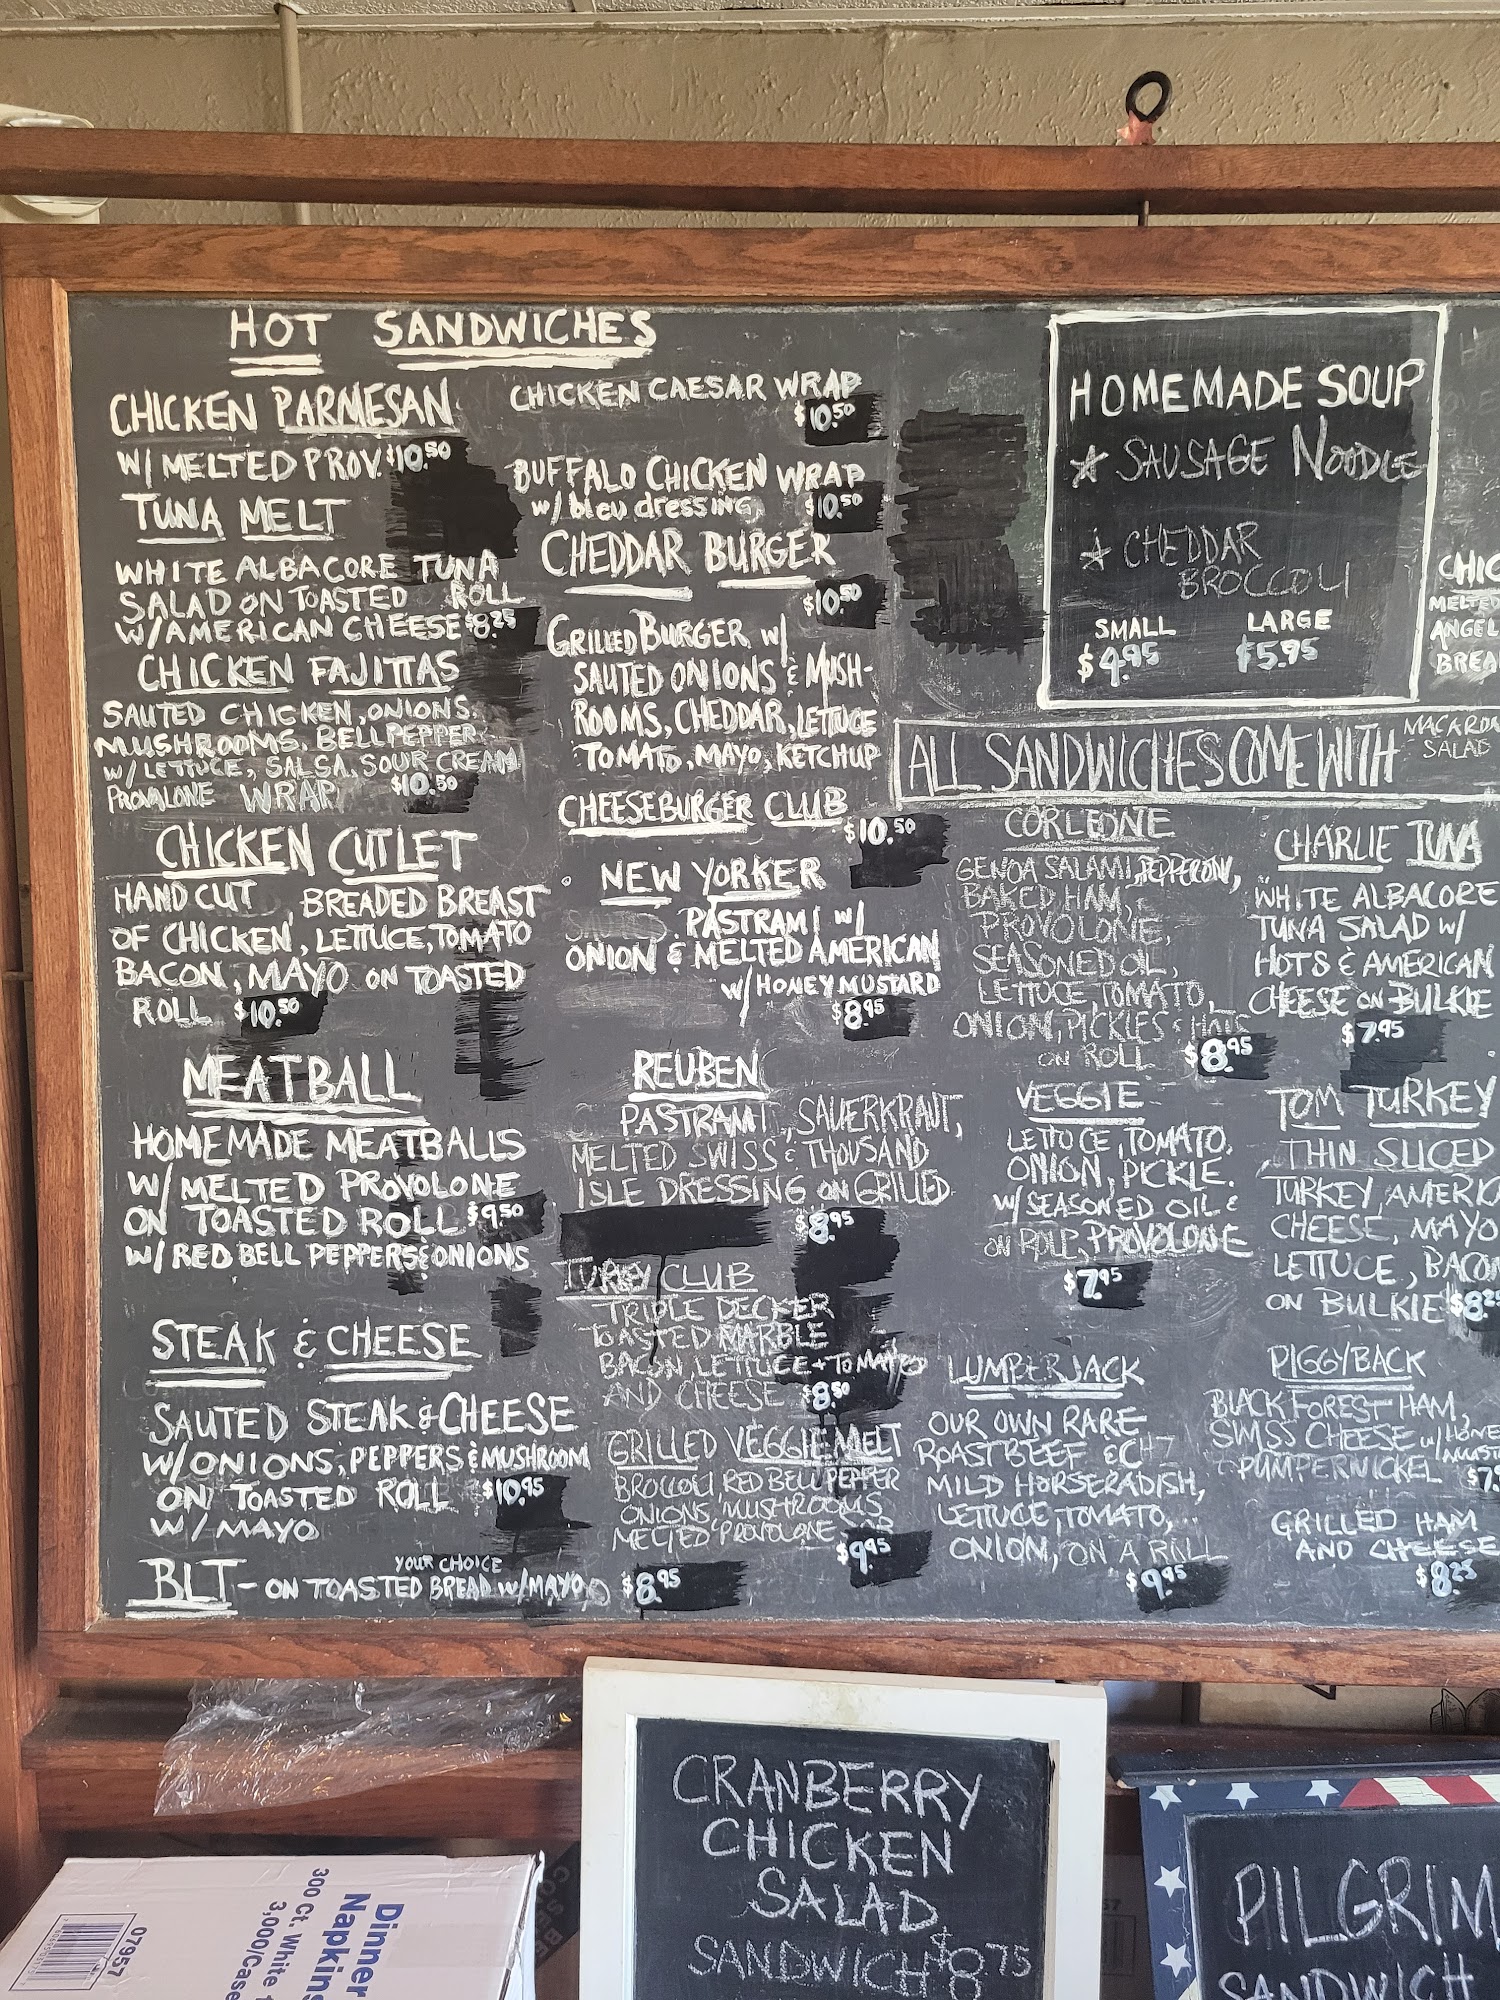 HOT SANDWICHES
CHICKEN PARMESAN
W/ MELTED PROV. $10.50
TUNA MELT
WHITE ALBACORE TUNA
SALAD ON TOASTED ROLL
W/AMERICAN CHEESE $8.25
CHICKEN FAJITTAS
SAUTED CHICKEN, ONIONS,
MUSHROOMS, BELLPEPPER
W/ LETTUCE, SALSA, SOUR CREAM
PROVALONE WRAP $10.50
CHICKEN CUTLET
HAND CUT BREADED BREAST
OF CHICKEN, LETTUCE, TOMATO
BACON, MAYO ON TOASTED
ROLL $10.50
MEATBALL
HOMEMADE MEATBALLS
W/ MELTED PROVOLONE
ON TOASTED ROLL $9.50
W/ RED BELL PEPPERS & ONIONS
STEAK & CHEESE
SAUTED STEAK & CHEESE
W/ONIONS, PEPPERS & MUSHROOM
ON TOASTED ROLL $10.95
W/ MAYO
YOUR CHOICE
BLT - ON TOASTED BREAD W/MAYO $8.95
CHICKEN CAESAR WRAP
$10.50
BUFFALO CHICKEN WRAP
w/ bleu dressing $10.50
CHEDDAR BURGER
$10.50
GRILLED BURGER W/
SAUTED ONIONS & MUSH-
ROOMS, CHEDDAR, LETTUCE
TOMATO, MAYO, KETCHUP
CHEESEBURGER CLUB
$10.50
NEW YORKER
PASTRAMI W/
ONION & MELTED AMERICAN
W/ HONEY MUSTARD
$8.95
REUBEN
PASTRAMI, SAUERKRAUT,
MELTED SWISS & THOUSAND
ISLE DRESSING ON GRILLED
$8.95
TURKEY CLUB
TRIPLE DECKER
TOASTED MARBLE
BACON, LETTUCE + TOMATO
AND CHEESE $8.50
GRILLED VEGGIE MELT
BROCCOLI RED BELL PEPPER
ONIONS, MUSHROOMS
MELTED PROVOLONE
$9.45
HOMEMADE SOUP
SAUSAGE NOODLE
CHEDDAR
BROCCOLI
SMALL LARGE
$4.95 $5.95
ALL SANDWICHES COME WITH
SALAD
CORLEONE
GENOA SALAMI, PEPPERONI,
BAKED HAM,
PROVOLONE,
SEASONED OIL,
LETTUCE, TOMATO,
ONION, PICKLES & HOTS
ON ROLL $8.95
VEGGIE
LETTUCE, TOMATO,
ONION, PICKLE.
W/ SEASONED OIL &
ON ROLL, PROVOLONE
$7.95
LUMBERJACK
OUR OWN RARE
ROAST BEEF &
MILD HORSERADISH,
LETTUCE, TOMATO,
ONION, ON A ROLL
$9.45
CHARLIE TUNA
WHITE ALBACORE
TUNA SALAD W/
HOTS & AMERICAN
CHEESE ON BULKIE
$7.95
TOM TURKEY
THIN SLICED
TURKEY,
CHEESE, MAYO
LETTUCE, BACON
ON BULKIE $8.25
PIGGYBACK
BLACK FOREST HAM,
SWISS CHEESE W/
PUMPERNICKEL
GRILLED HAM
AND CHEESE
$8.25
MELTED
CRANBERRY
CHICKEN
SALAD
SANDWICH $8.75
PILGRIM
SANDWICH
Dinner
Napkins
300 Ct. White
3,000/Case
07957